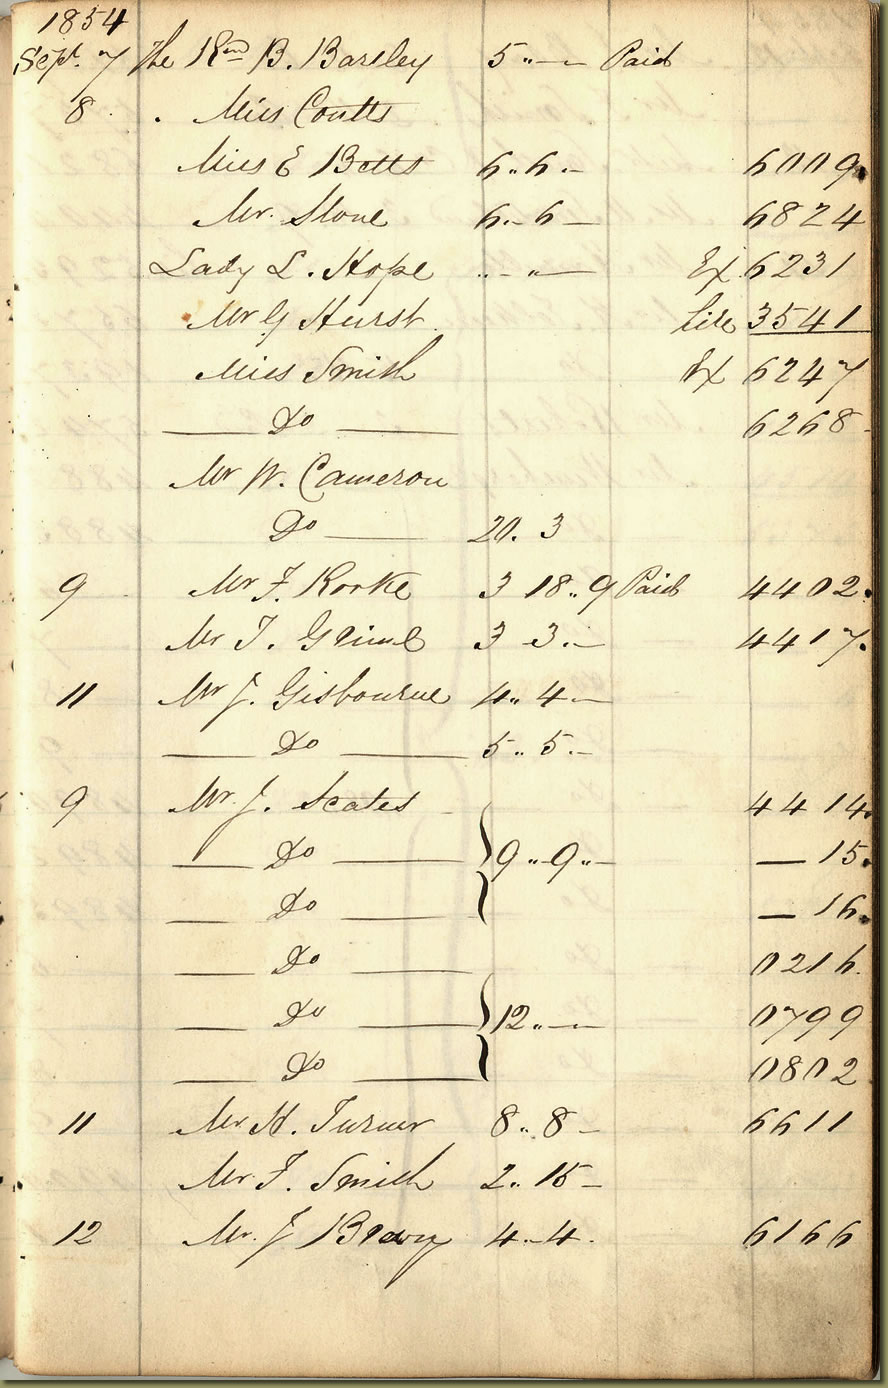 1854
Sept. 7 The Revd B. Barsley 5 „ — — Paid
8 . Miss Coutts
Miss E Betts 6 „ 6 . — 6009
Mr. Stone 6 . - 6 — 6824
Lady L. Hope „ - „ — Ex 6231
Mr G Hurst 3541
Miss Smith Ex 6247
— Do — 6268
Mr W. Cameron
Do — 20. 3
9 Mr F. Rooke 3 18 „ 9 Paid 4402.
Mr T. 3 3 . — 4417.
11 Mr J. Gisbourne 4 „ 4 —
— Do — 5 „ 5 . —
9 Mr. J. Scates 4414.
— Do — } 9 „ - 9 „ — — 15.
— Do — — 16.
— Do — 0216.
— Do — } 12 „ — — 0799
— Do — 0802
11 Mr. H. Turner 8 „ 8 — 6611
Mr. F. Smith 2 „ 15 —
12 Mr. J 4 . - 4 . 6166